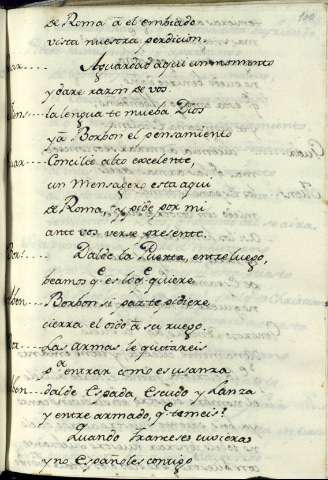 100
de Roma a el embiado
vista nuestra perdicion.
Aguardad aqui un momento
y dare razon de vos.
la lengua te mueba Dios
y a Borbon el pensamiento
Concilio alto excelente,
un Mensagero esta aqui
de Roma, y pide por mi
ante vos verse presente.
Dalde la Puerta, entre luego,
beamos q.e es lo q.e quiere
Borbon si parte pidiere
cierra el oido a su ruego.
Las armas le quitareis
p.a entrar como es usanza
dalde Espada, Escudo y Lanza
y entre armado, q.e temeis?
Quando Franceses tuvieras
y no Españoles contigo